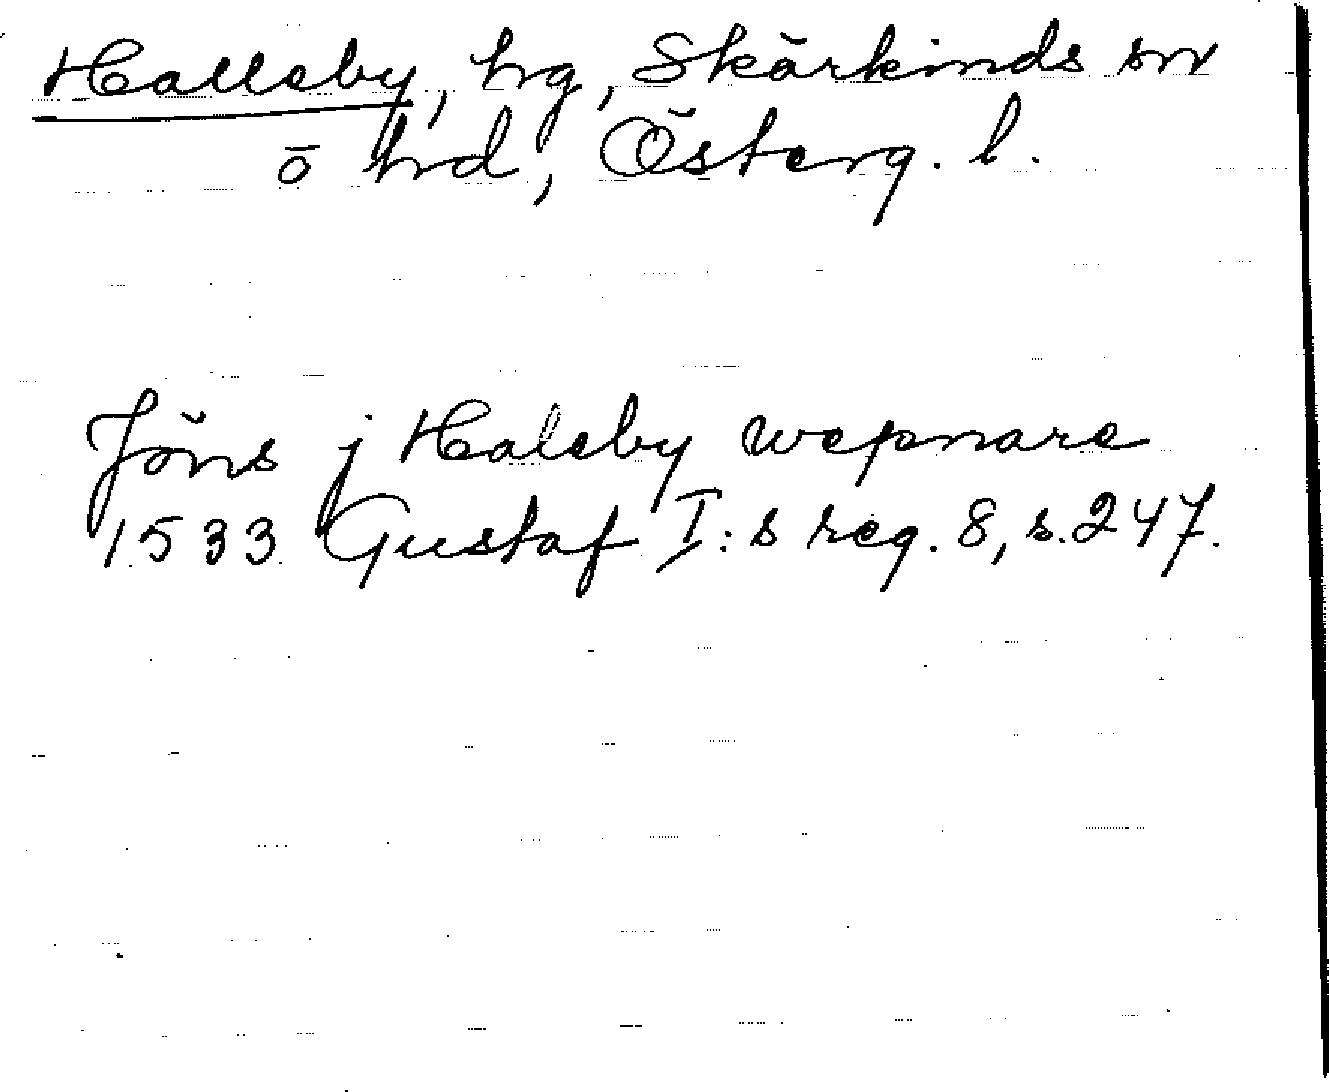 Halleby, hg, Skärkinds sn
ö hd, Österg. l.
Jöns j Haleby wepnare
1533 Gustaf I:s reg. 8, s. 247.